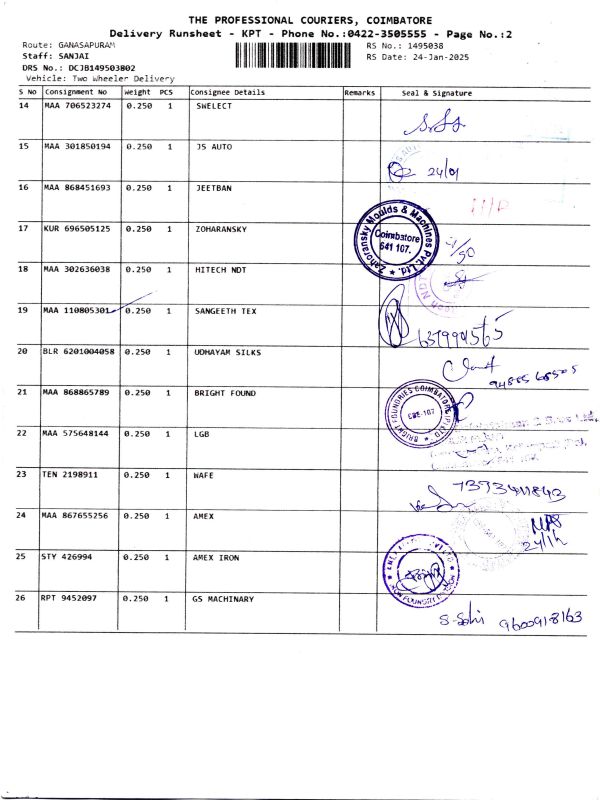 THE PROFESSIONAL COURIERS, COIMBATORE
Delivery Runsheet - KPT - Phone No.:0422-3505555 - Page No.:2
Route: GANASAPURAM RS No.: 1495038
Staff: SANJAI RS Date: 24-Jan-2025
DRS No.: DCJB149503802
Vehicle: Two Wheeler Delivery
S No Consignment No Weight PCS Consignee Details Remarks Seal & Signature
14 MAA 706523274 0.250 1 SWELECT
15 MAA 301850194 0.250 1 JS AUTO
24/01
16 MAA 868451693 0.250 1 JEETBAN
17 KUR 696505125 0.250 1 ZOHARANSKY
Zahoransky Moulds & Machines Pvt. Ltd.
Coimbatore
641 107.
18 MAA 302636038 0.250 1 HITECH NDT
19 MAA 110805301 0.250 1 SANGEETH TEX
20 BLR 6201004058 0.250 1 UDHAYAM SILKS
21 MAA 868865789 0.250 1 BRIGHT FOUND
BRIGHT FOUNDRIES COIMBATORE
CBE-107
22 MAA 575648144 0.250 1 LGB
23 TEN 2198911 0.250 1 WAFE
7373411843
24 MAA 867655256 0.250 1 AMEX
25 STY 426994 0.250 1 AMEX IRON
26 RPT 9452097 0.250 1 GS MACHINARY
9600918163